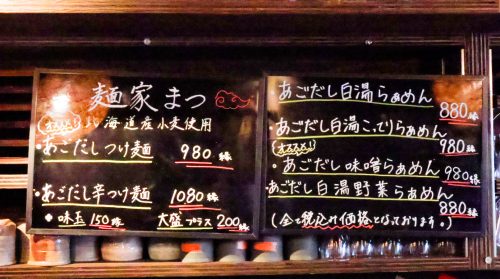 麺家まつ
オススメ! 北海道産小麦使用
・あごだしつけ麺 980縁
・あごだし辛つけ麺 1080縁
味玉 150縁 大盛プラス 200縁
あごだし白湯らぁめん 880縁
・あごだし白湯こってりらぁめん 980縁
オススメ!
・あごだし味噌らぁめん 980縁
・あごだし白湯野菜らぁめん 880縁
(全て税込み価格となっております。)